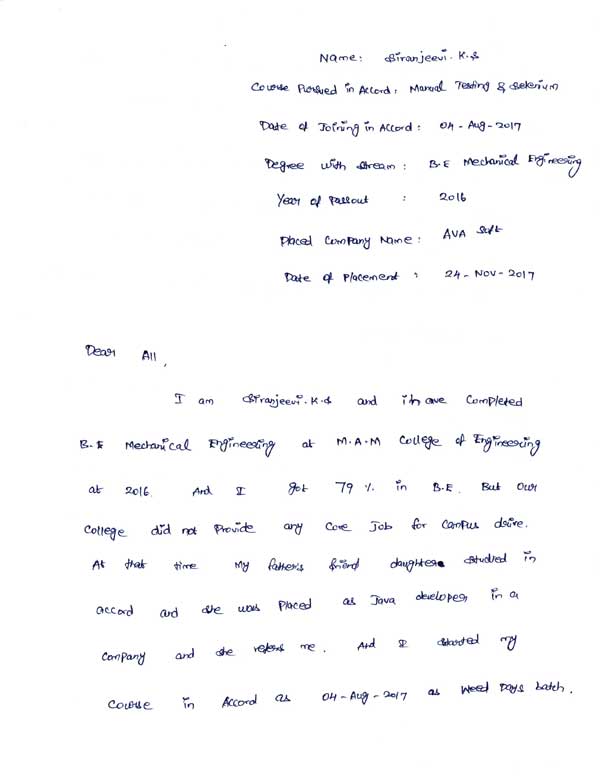 Name: Siranjeevi.K.S
Course Pursued in Accord: Manual Testing & Selenium
Date of Joining in Accord: 04-Aug-2017
Degree with Stream: B.E Mechanical Engineering
Year of Passout : 2016
Placed Company Name: AVA Soft
Date of Placement : 24-Nov-2017
Dear All,
I am Siranjeevi.K.S and i have Completed
B.E Mechanical Engineering at M.A.M College of Engineering
at 2016. And I got 79 % in B.E. But our
College did not Provide any Core Job for Campus drive.
At that time my father's friend daughter studied in
accord and she was placed as Java developer in a
Company and she refers me. And I started my
Course in Accord as 04-Aug-2017 as Weed Days batch.